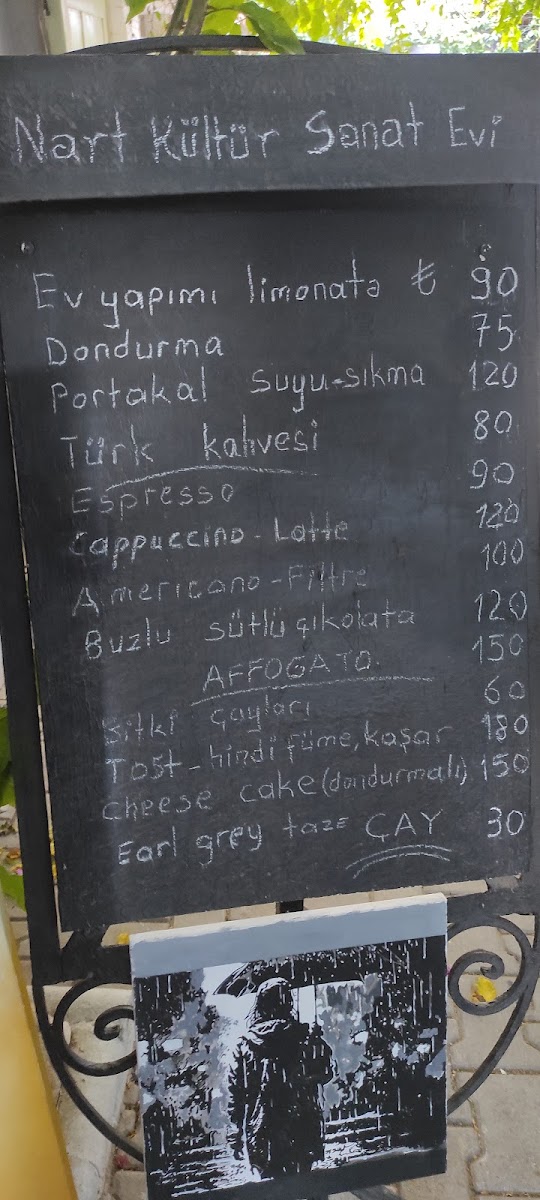 Nart Kültür Sanat Evi
Ev yapımı limonata ₺ 90
Dondurma 75
Portakal suyu-sıkma 120
Türk kahvesi 80
Espresso 90
Cappuccino-Latte 120
Americano-Filtre 100
Buzlu sütlü çikolata 120
AFFOGATO. 150
Bitki çayları 60
Tost-hindi füme, kaşar 180
Cheese cake (dondurmalı) 150
Earl grey taze ÇAY 30